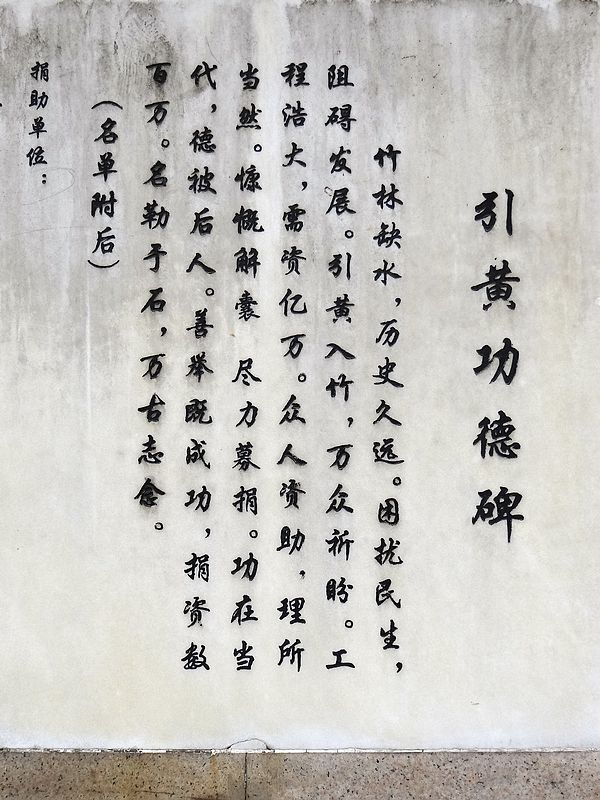 引黄功德碑
竹林缺水，历史久远。困扰民生，
阻碍发展。引黄入竹，万众祈盼。工
程浩大，需资亿万。众人资助，理所
当然。慷慨解囊 尽力募捐。功在当
代，德被后人。善举既成功，捐资数
百万。名勒于石，万古志念。
（名单附后）
捐助单位：